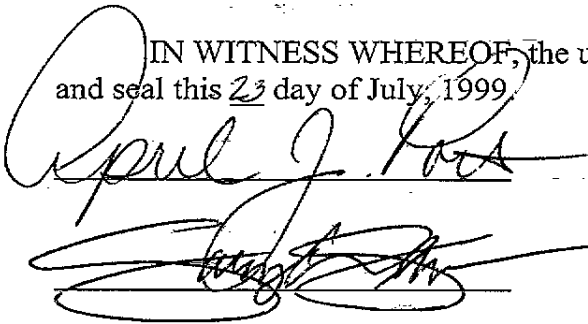 IN WITNESS WHEREOF, the u
and seal this 23 day of July, 1999.
April J.